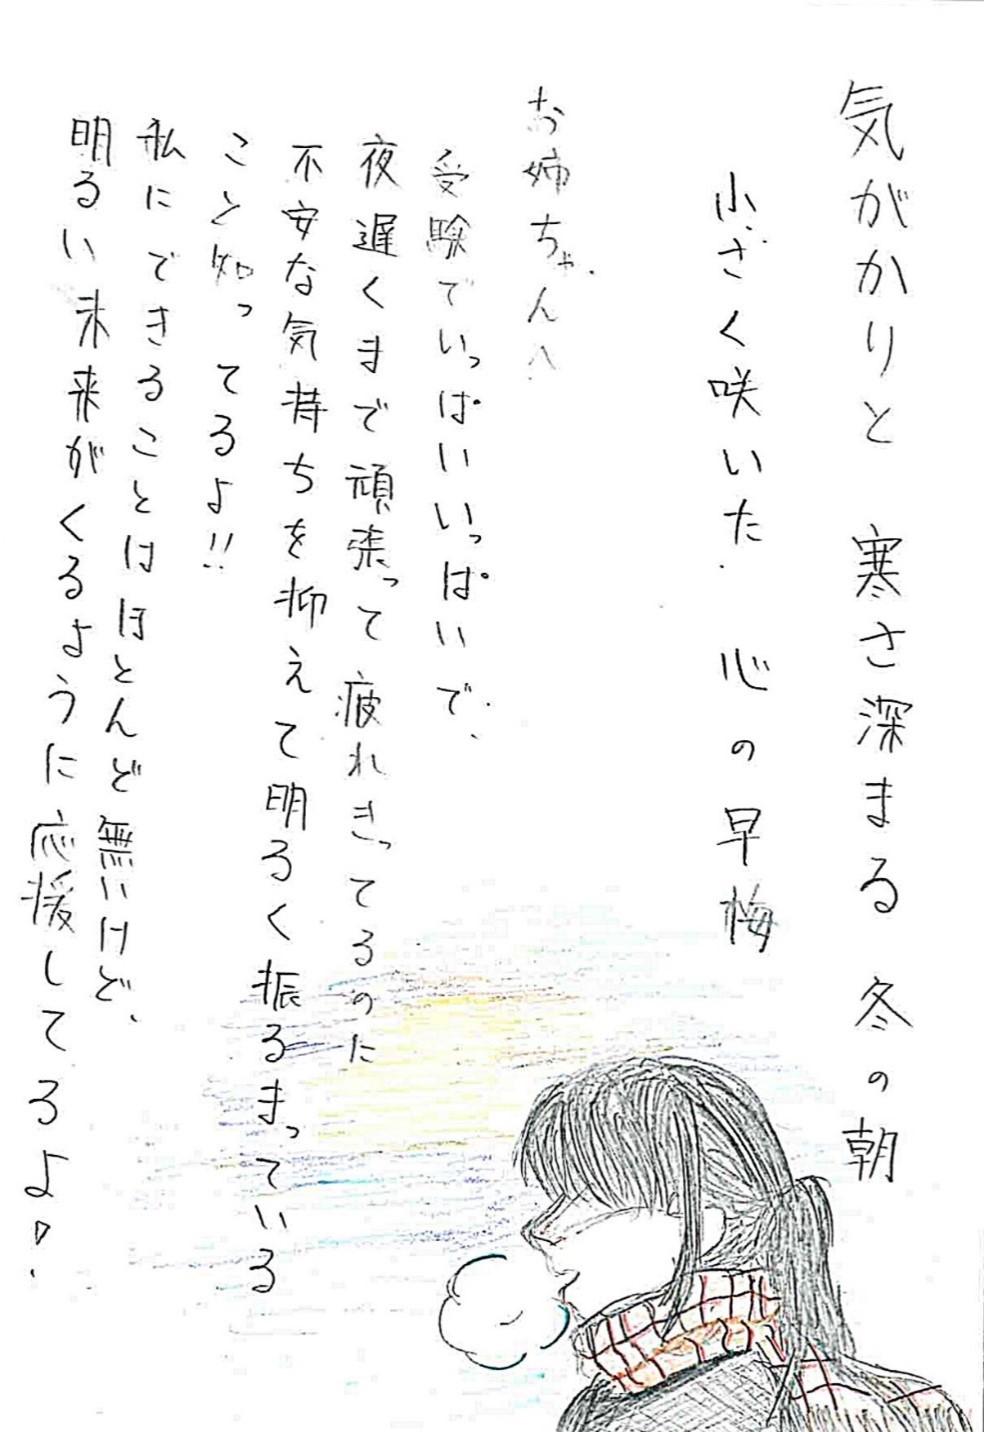 気がかりと 寒さ深まる 冬の朝
小さく咲いた 心の早梅
お姉ちゃんへ
受験でいっぱいいっぱいで、
夜遅くまで頑張って疲れきってるのに
不安な気持ちを抑えて明るく振るまっている
こと知ってるよ!!
私にできることはほとんど無いけど、
明るい未来がくるように応援してるよ